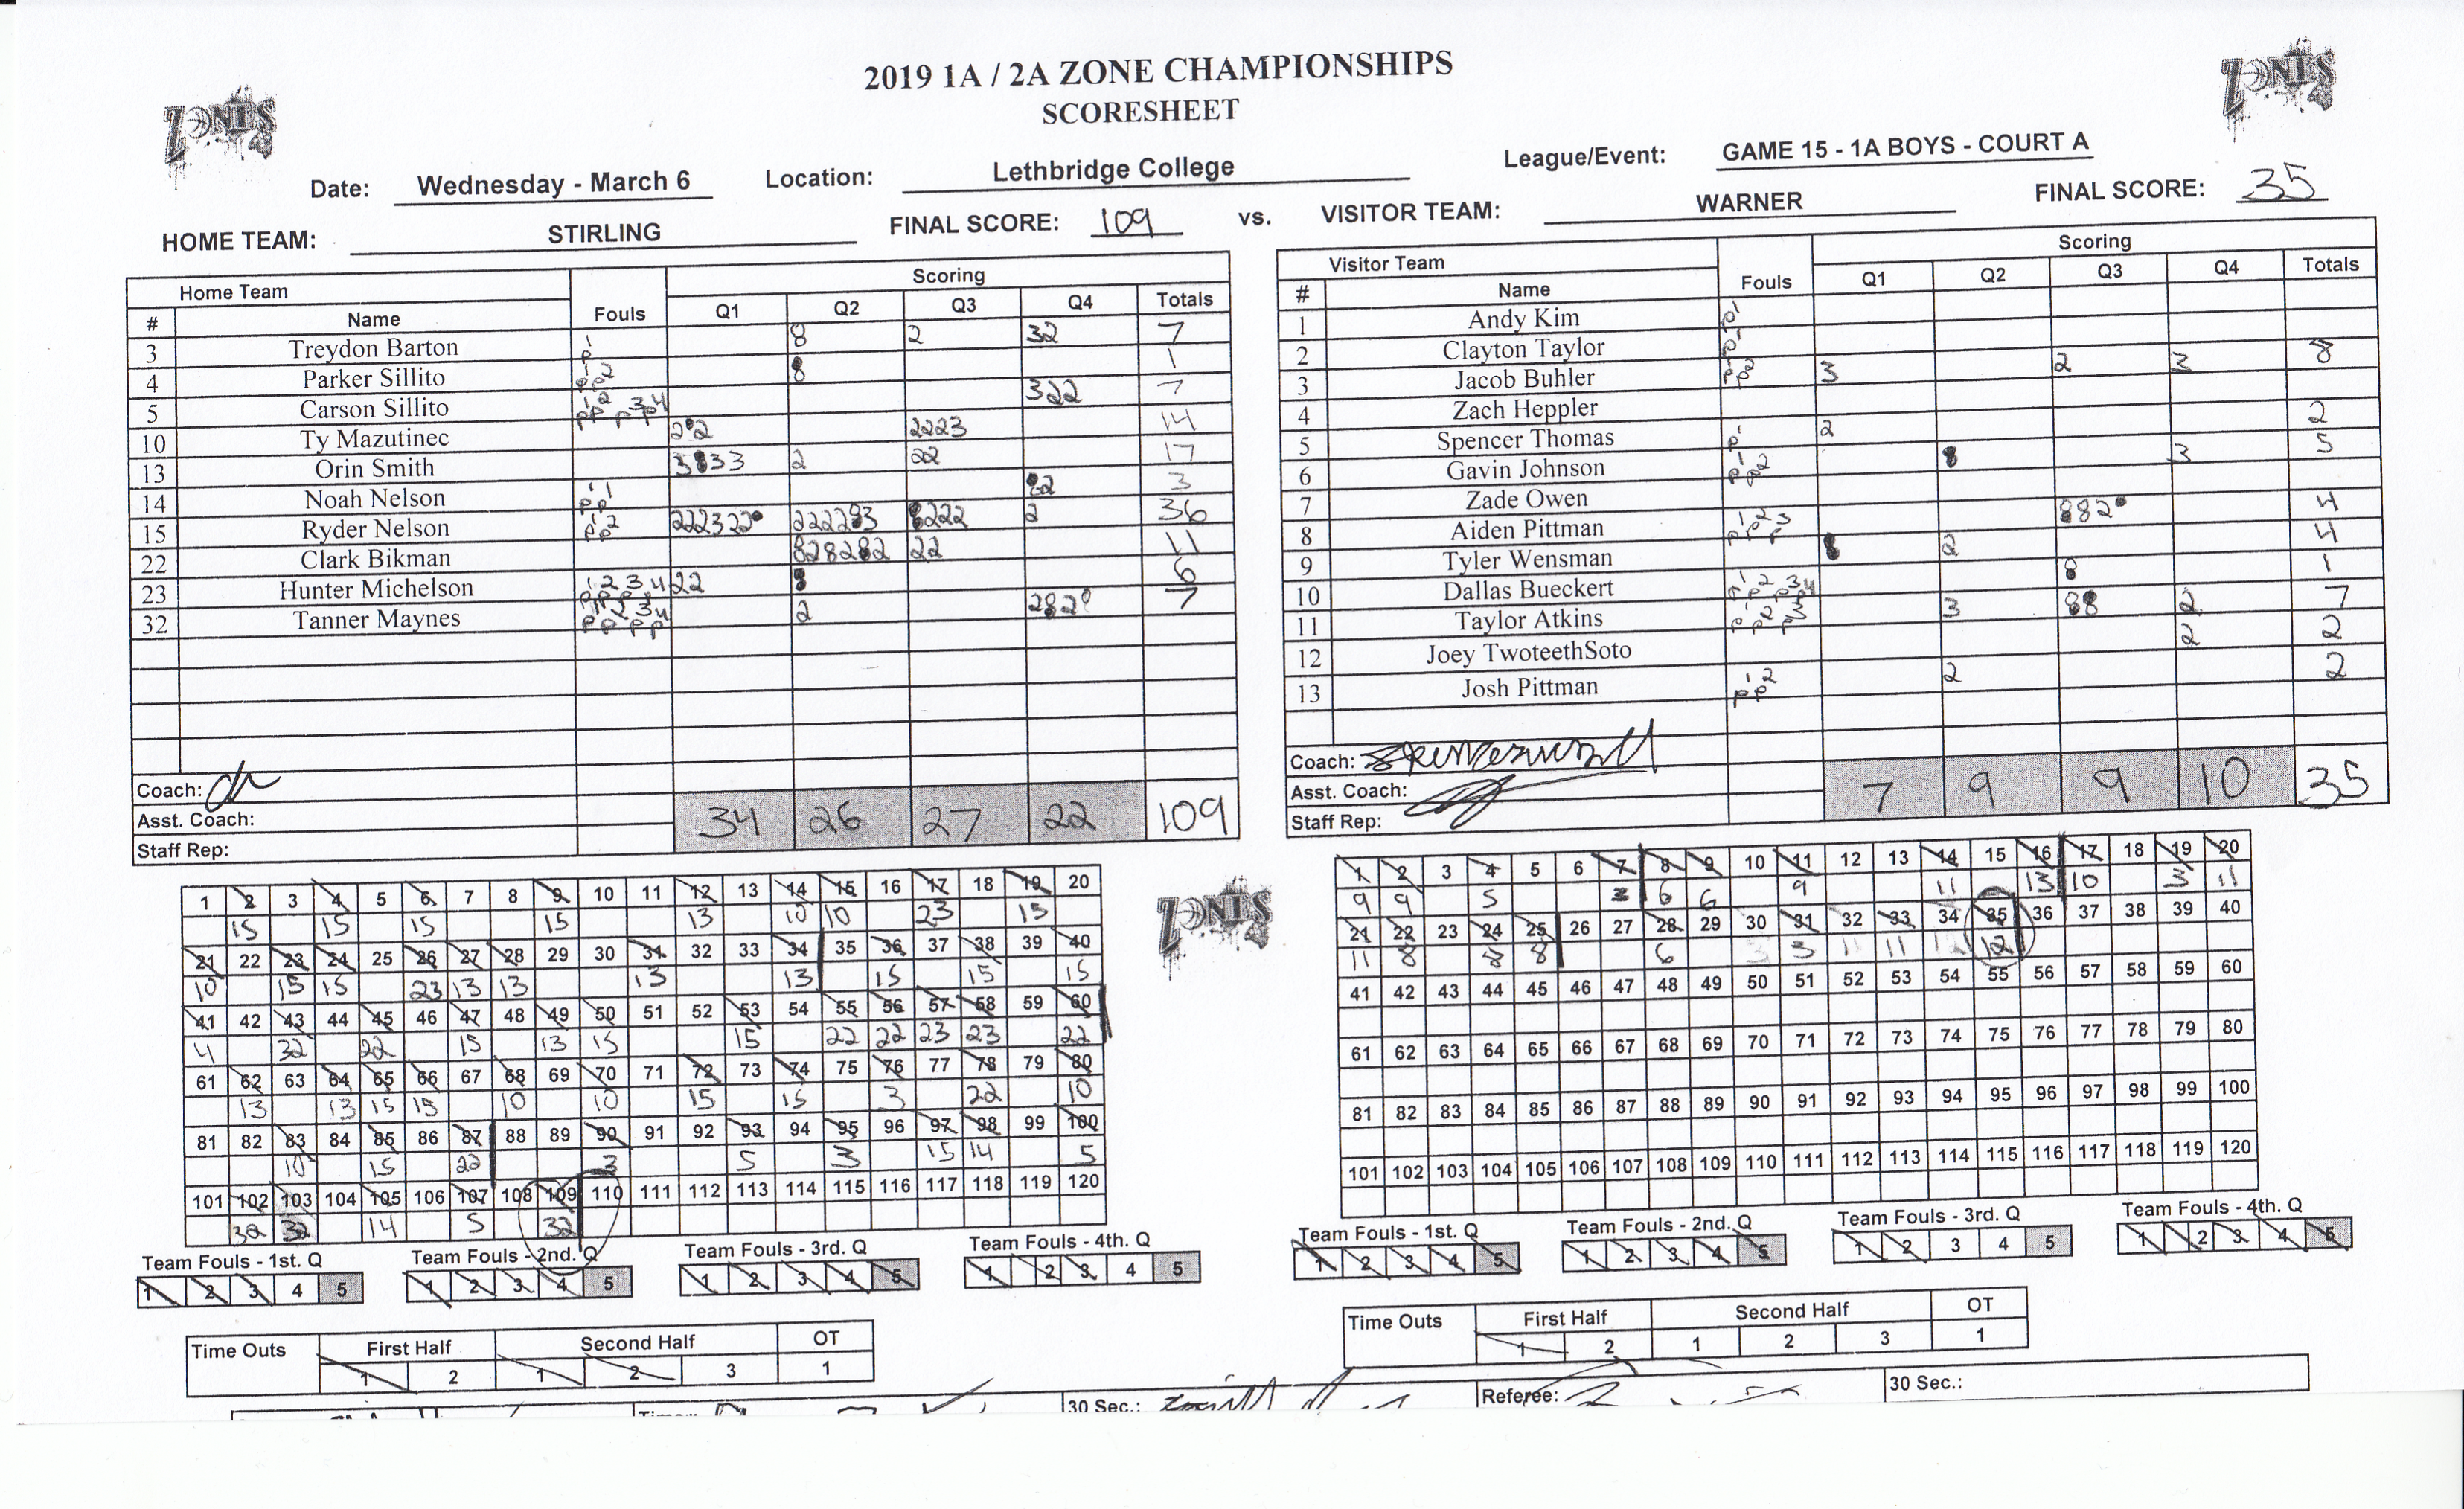 2019 1A / 2A ZONE CHAMPIONSHIPS
SCORESHEET
ZONES
ZONES
Date: Wednesday - March 6 Location: Lethbridge College League/Event: GAME 15 - 1A BOYS - COURT A
HOME TEAM: STIRLING FINAL SCORE: 109 vs. VISITOR TEAM: WARNER FINAL SCORE: 35
Home Team Scoring
# Name Fouls Q1 Q2 Q3 Q4 Totals
3 Treydon Barton 2 32 7
4 Parker Sillito 1
5 Carson Sillito 322 7
10 Ty Mazutinec 2223 14
13 Orin Smith 2 22 17
14 Noah Nelson 3
15 Ryder Nelson 2 36
22 Clark Bikman 22 11
23 Hunter Michelson 22 6
32 Tanner Maynes 2 7
Coach:
Asst. Coach:
Staff Rep:
34 26 27 22 109
Visitor Team Scoring
# Name Fouls Q1 Q2 Q3 Q4 Totals
1 Andy Kim
2 Clayton Taylor
3 Jacob Buhler 3 2 3 8
4 Zach Heppler
5 Spencer Thomas 2 2
6 Gavin Johnson 3 5
7 Zade Owen
8 Aiden Pittman 4
9 Tyler Wensman 2 4
10 Dallas Bueckert 1
11 Taylor Atkins 3 2 7
12 Joey TwoteethSoto 2 2
13 Josh Pittman 2 2
Coach:
Asst. Coach:
Staff Rep:
7 9 9 10 35
1 2 3 4 5 6 7 8 9 10 11 12 13 14 15 16 17 18 19 20
15 15 15 15 13 10 10 23 15
21 22 23 24 25 26 27 28 29 30 31 32 33 34 35 36 37 38 39 40
10 15 15 23 13 13 13 13 15 15 15
41 42 43 44 45 46 47 48 49 50 51 52 53 54 55 56 57 58 59 60
4 32 22 15 13 15 15 22 22 23 23 22
61 62 63 64 65 66 67 68 69 70 71 72 73 74 75 76 77 78 79 80
13 13 15 15 10 10 15 15 3 22 10
81 82 83 84 85 86 87 88 89 90 91 92 93 94 95 96 97 98 99 100
10 15 22 3 5 3 15 14 5
101 102 103 104 105 106 107 108 109 110 111 112 113 114 115 116 117 118 119 120
32 32 14 5 32
ZONES
1 2 3 4 5 6 7 8 9 10 11 12 13 14 15 16 17 18 19 20
9 9 5 3 6 6 9 11 13 10 3 11
21 22 23 24 25 26 27 28 29 30 31 32 33 34 35 36 37 38 39 40
11 8 8 8 6 3 3 11 11 12 12
41 42 43 44 45 46 47 48 49 50 51 52 53 54 55 56 57 58 59 60
61 62 63 64 65 66 67 68 69 70 71 72 73 74 75 76 77 78 79 80
81 82 83 84 85 86 87 88 89 90 91 92 93 94 95 96 97 98 99 100
101 102 103 104 105 106 107 108 109 110 111 112 113 114 115 116 117 118 119 120
Team Fouls - 1st. Q Team Fouls - 2nd. Q Team Fouls - 3rd. Q Team Fouls - 4th. Q
1 2 3 4 5 1 2 3 4 5 1 2 3 4 5 1 2 3 4 5
Team Fouls - 1st. Q Team Fouls - 2nd. Q Team Fouls - 3rd. Q Team Fouls - 4th. Q
1 2 3 4 5 1 2 3 4 5 1 2 3 4 5 1 2 3 4 5
Time Outs First Half Second Half OT
1 2 1 2 3 1
Time Outs First Half Second Half OT
1 2 1 2 3 1
30 Sec.: Referee: 30 Sec.: